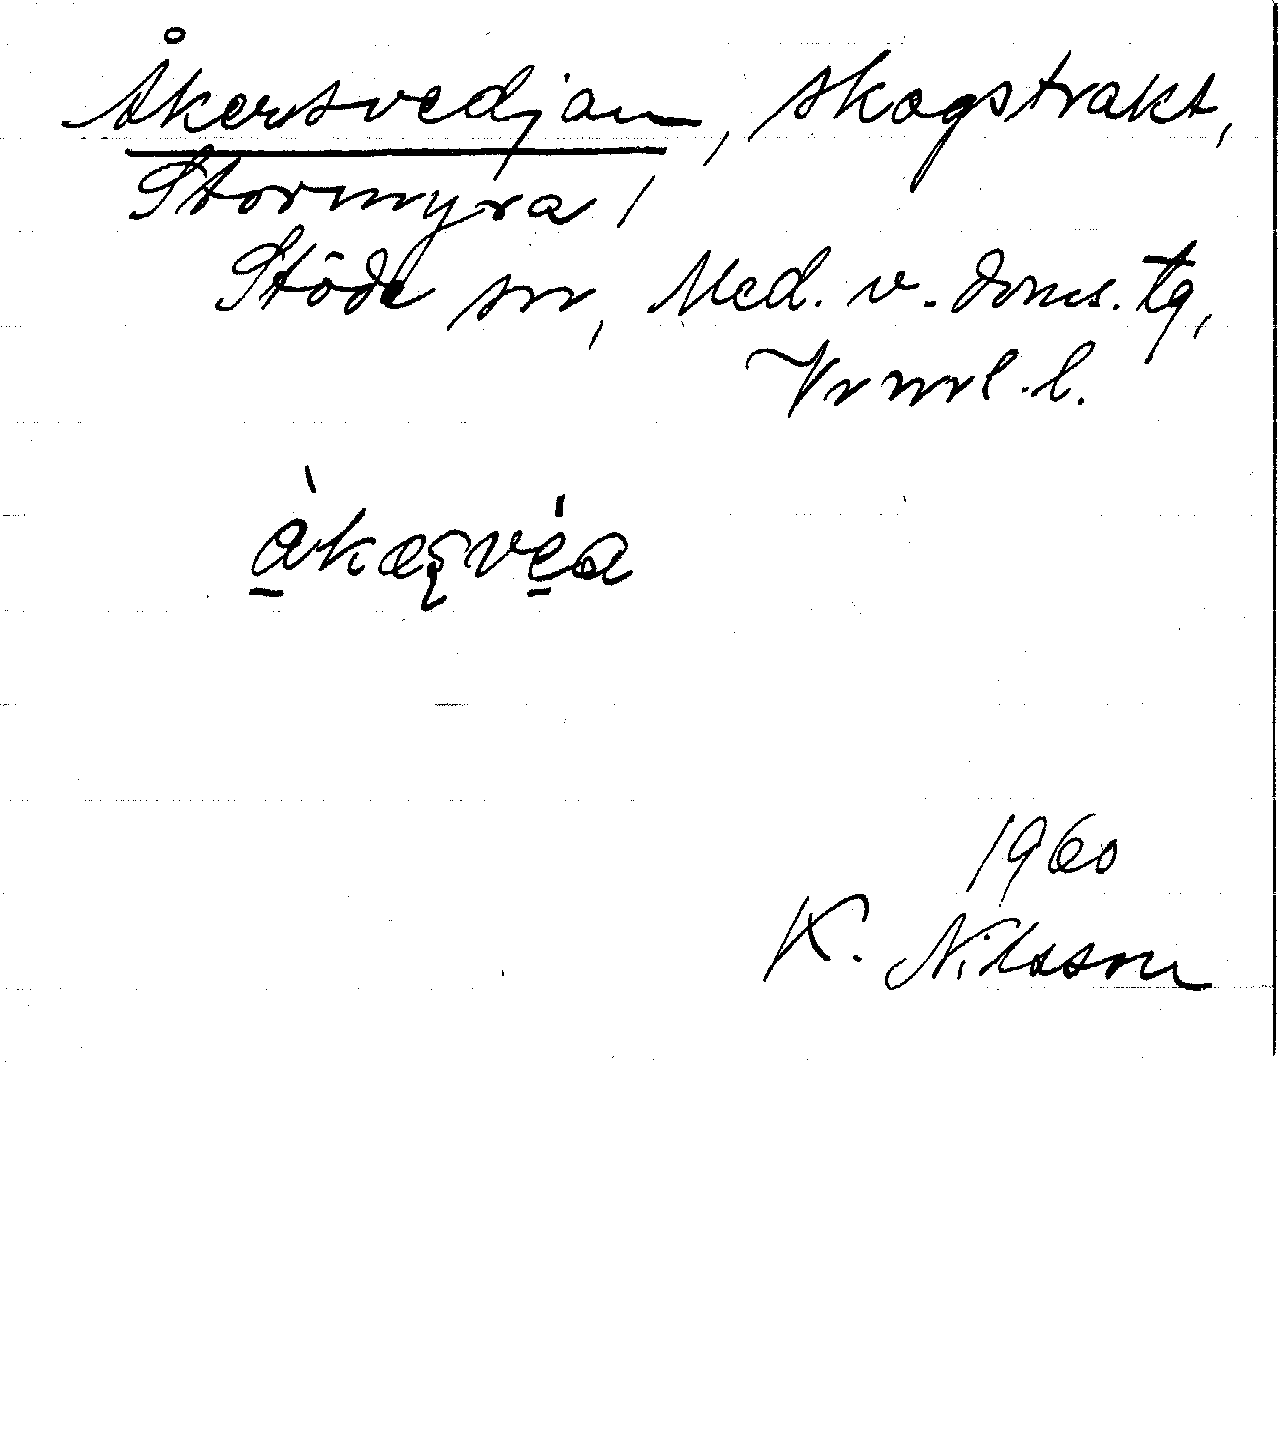 Åkersvedjan, skogstrakt,
Stormyra,
Stöde sn, Med. v. doms. tg,
Vrnrl. l.
åkæʂvéa
1960
K. Nilsson